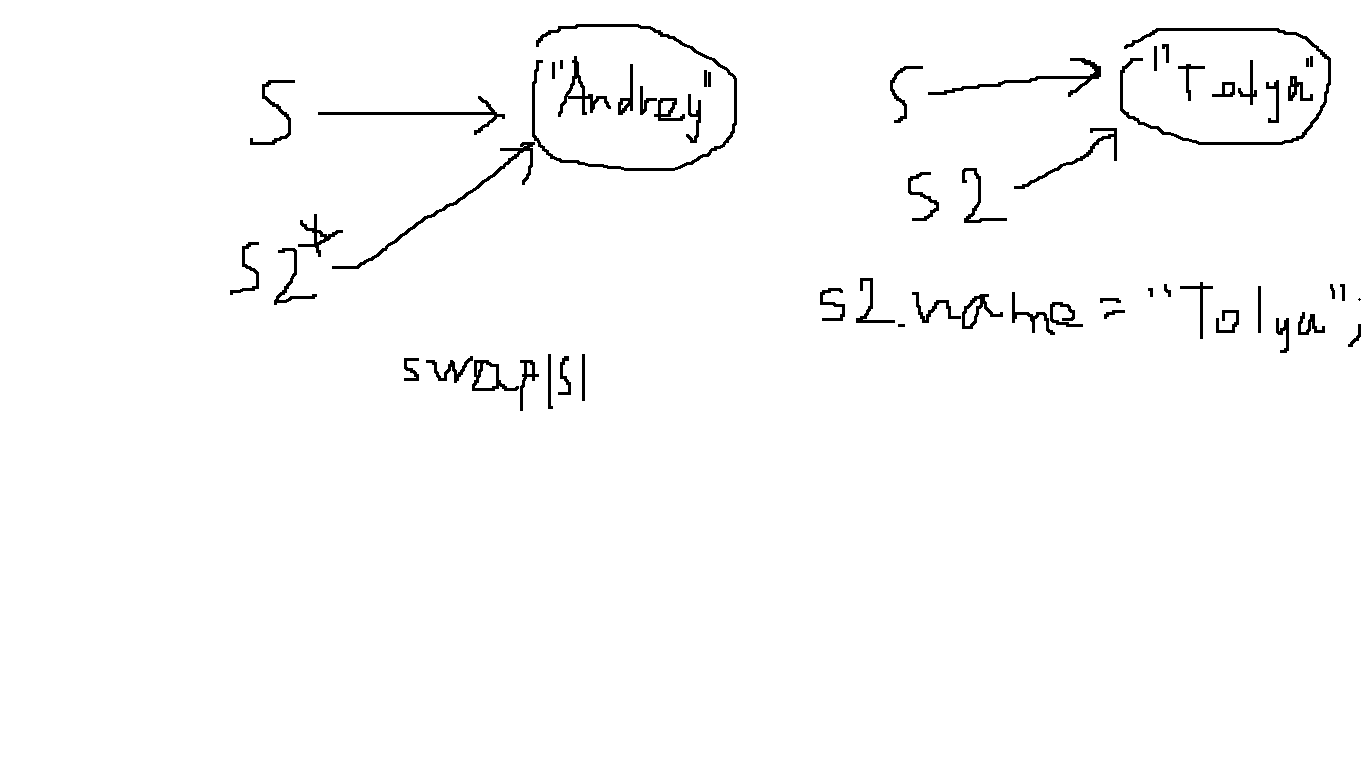 S "Andrey"
S2*
swap|S|
S "Tolya"
S2
S2.name = "Tolya";